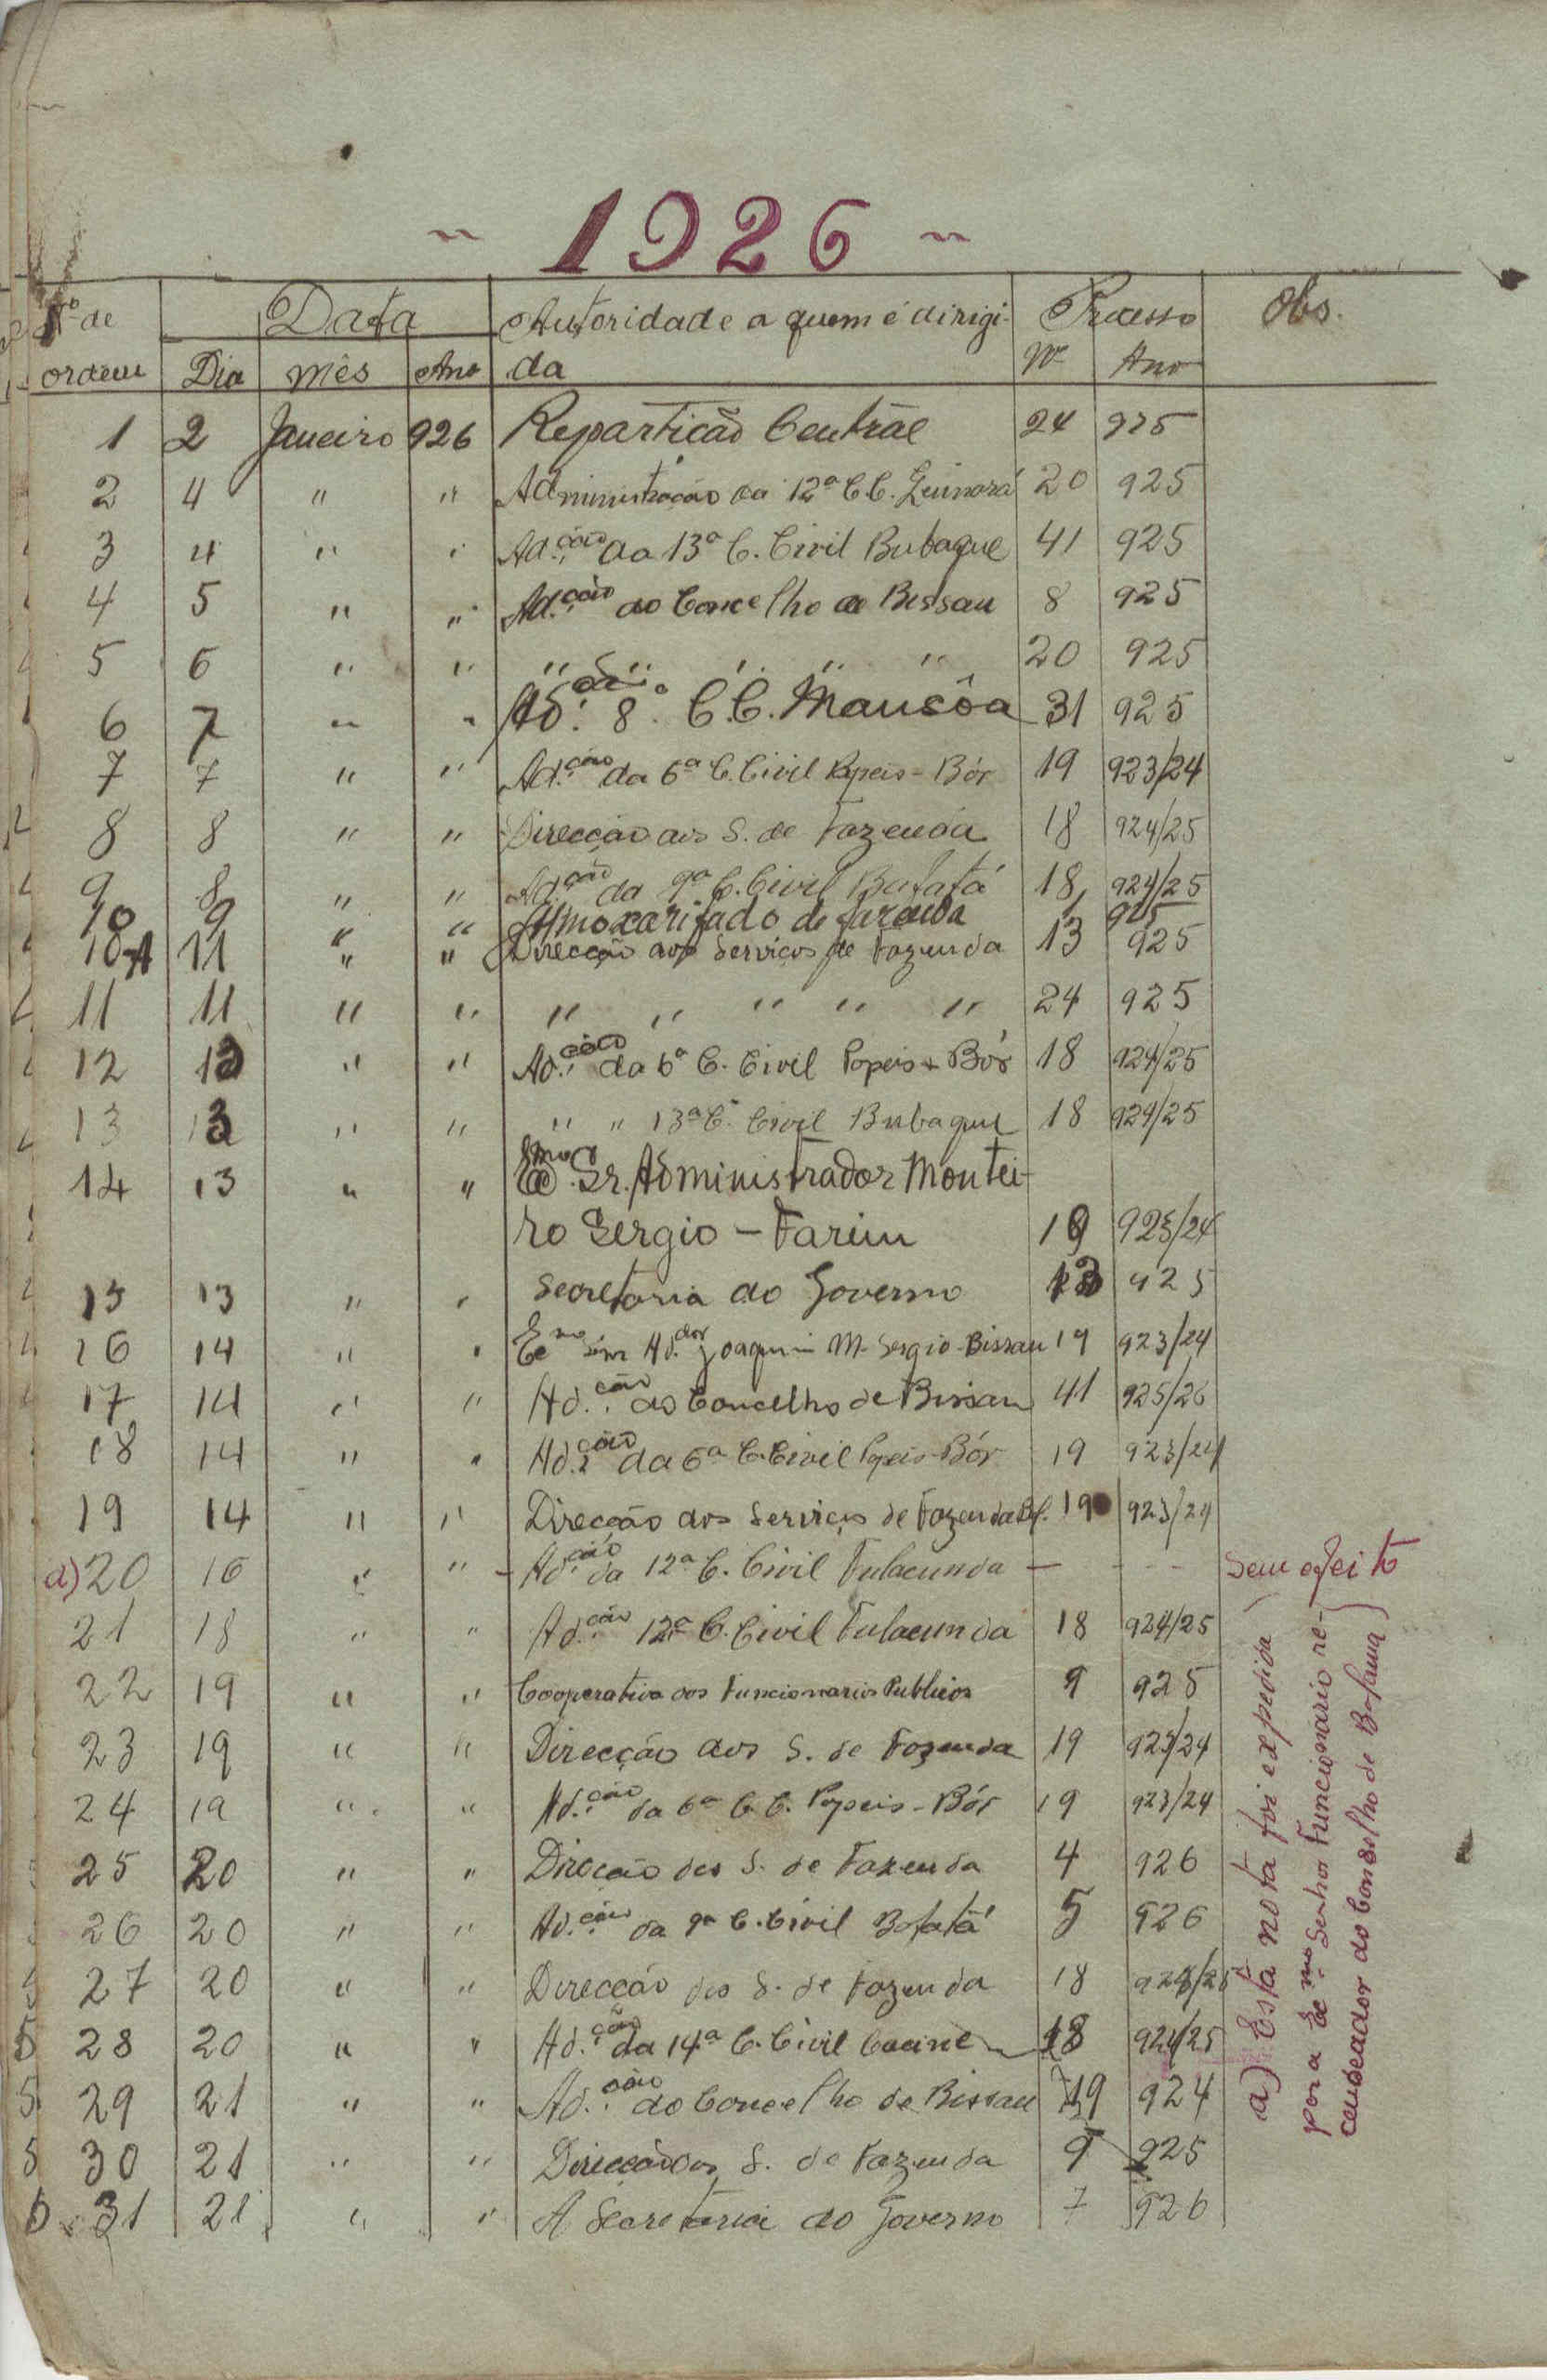 ~ 1926 ~
Nº de Data Autoridade a quem é dirigi- Processo Obs.
ordem Dia Mês Ano da Nº Ano
1 2 Janeiro 926 Repartição Central 24 925
2 4 " " Administração da 12ª C.C. Quinará 20 925
3 4 " " Ad.ção da 13ª C. Civil Bubaque 41 925
4 5 " " Ad.ção do Concelho de Bissau 8 925
5 6 " " " " " " " 20 925
6 7 " " Ad.ção 8ª C.C. Mansôa 31 925
7 7 " " Ad.ção da 6ª C. Civil Papeis - Bór 19 923/24
8 8 " " Direcção dos S. de Fazenda 18 924/25
9 8 " " Ad.ção da 9ª C. Civil Bafatá 18 924/25
10 9 " " Almoxarifado de Fazenda 925
10-A 11 " " Direcção dos Serviços de Fazenda 13 925
11 11 " " " " " " " 24 925
12 12 " " Ad.ção da 6ª C. Civil Papeis - Bór 18 924/25
13 13 " " " " 13ª C. Civil Bubaque 18 924/25
14 13 " " Exmo Sr. Administrador Montei-
ro Sergio - Farim 19 923/24
15 13 " " Secretaria do Governo 13 925
16 14 " " Exmo Snr Ad.dor Joaquim M. Sergio - Bissau 19 923/24
17 14 " " Ad.ção do Concelho de Bissau 41 925/26
18 14 " " Ad.ção da 6ª C. Civil Papeis - Bór 19 923/24
19 14 " " Direcção dos Serviços de Fazenda Bf. 19 923/24
a) 20 16 " " - Ad.ção da 12ª C. Civil Fulacunda - - - - Sem efeito
21 18 " " Ad.ção 12ª C. Civil Fulacunda 18 924/25
22 19 " " Cooperativa dos Funcionarios Publicos 9 925
23 19 " " Direcção dos S. de Fazenda 19 923/24
24 19 " " Ad.ção da 6ª C.C. Papeis - Bór 19 923/24
25 20 " " Direcção dos S. de Fazenda 4 926
26 20 " " Ad.ção da 9ª C. Civil Bafatá 5 926
27 20 " " Direcção dos S. de Fazenda 18 924/25
28 20 " " Ad.ção da 14ª C. Civil Cacine 18 924/25
29 21 " " Ad.ção do Concelho de Bissau 19 924
30 21 " " Direcção dos S. de Fazenda 9 925
31 21 " " A Secretaria do Governo 7 926
a) Esta nota foi expedida
para Exmo Senhor Funcionario re-
censeador do Conselho de Bolama)